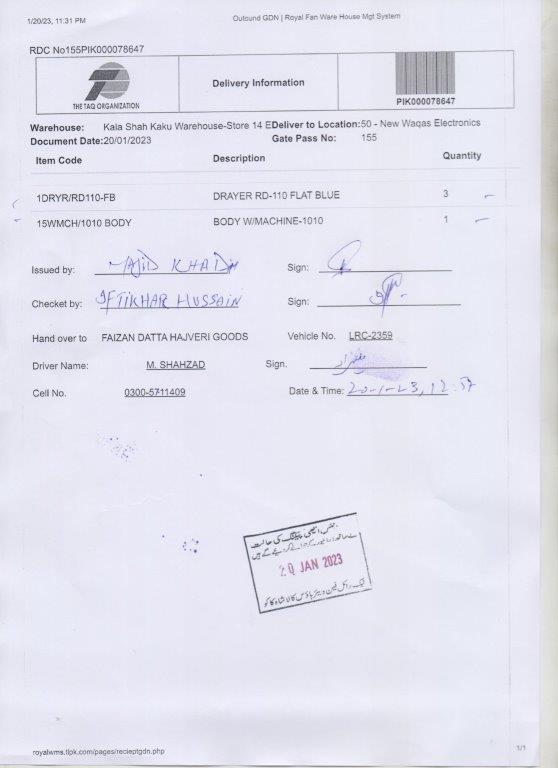 1/20/23, 11:31 PM Outound GDN | Royal Fan Ware House Mgt System
RDC No155PIK000078647
THE TAQ ORGANIZATION
Delivery Information
PIK000078647
Warehouse: Kala Shah Kaku Warehouse-Store 14 EDeliver to Location:50 - New Waqas Electronics
Document Date:20/01/2023 Gate Pass No: 155
Item Code Description Quantity
1DRYR/RD110-FB DRAYER RD-110 FLAT BLUE 3
15WMCH/1010 BODY BODY W/MACHINE-1010 1
Issued by: MAJID KHAN Sign:
Checket by: IFTIKHAR HUSSAIN Sign:
Hand over to FAIZAN DATTA HAJVERI GOODS Vehicle No. LRC-2359
Driver Name: M. SHAHZAD Sign.
Cell No. 0300-5711409 Date & Time: 20-1-23, 12:57
جنس اچھی پیکنگ کی حالت
20 JAN 2023
royalwms.tlpk.com/pages/recieptgdn.php 1/1